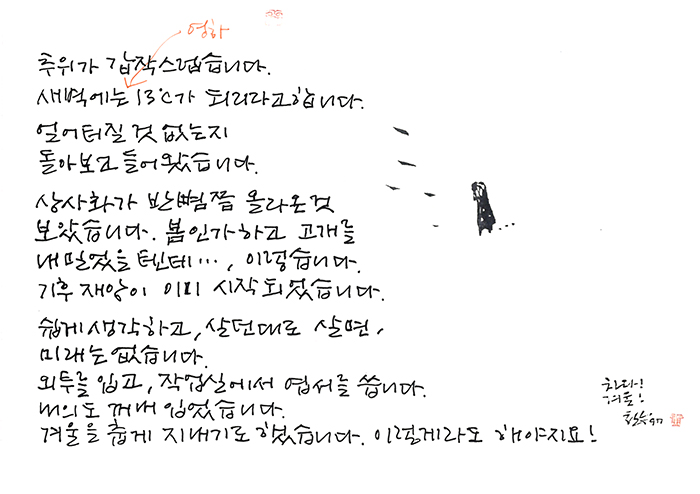 영하
추위가 갑작스럽습니다.
새벽에는 13℃가 되리라고합니다.
얼어터질 것 없는지
돌아보고 들어왔습니다.
상사화가 반뼘쯤 올라온것
보았습니다. 봄인가하고 고개를
내밀었을 텐데…, 이렇습니다.
기후 재앙이 이미 시작되었습니다.
쉽게 생각하고, 살던대로 살면,
미래는 없습니다.
외투를 입고, 작업실에서 엽서를 씁니다.
내의도 꺼내 입었습니다.
겨울을 춥게 지내기로 했습니다. 이렇게라도 해야지요!
차다!
겨울!